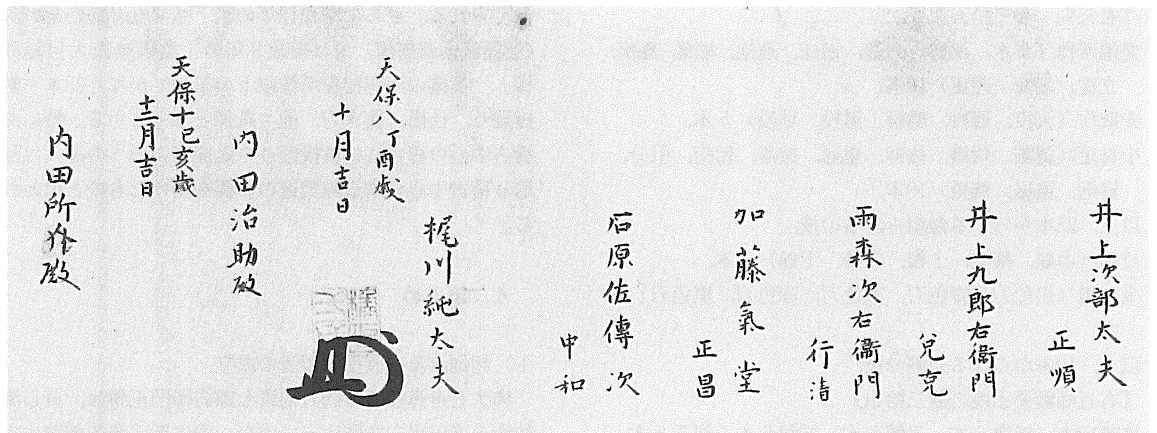 井上次部太夫
正順
井上九郎右衞門
兌克
雨森次右衞門
行清
加藤氣堂
正昌
石原佐傳次
申和
梶川純太夫
天保八丁酉歳
十月吉日
内田治助殿
天保十己亥歳
十二月吉日
内田所外殿